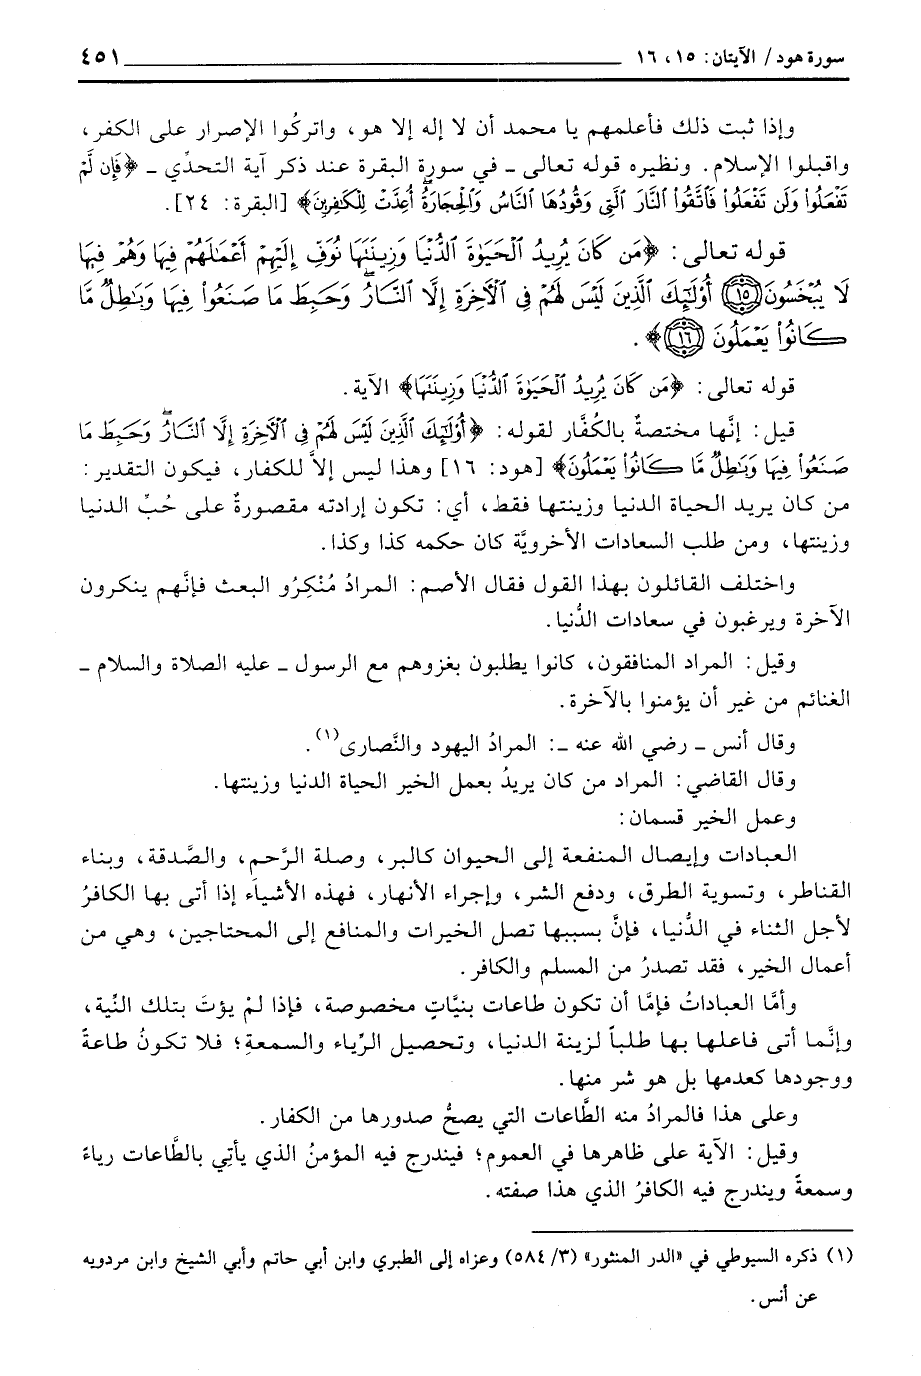 سورة هود/ الآيتان: ١٥، ١٦ ٤٥١
وإذا ثبت ذلك فأعلمهم يا محمد أن لا إله إلا هو، واتركُوا الإصرار على الكفر،
واقبلوا الإسلام. ونظيره قوله تعالى ـ في سورة البقرة عند ذكر آية التحدِّي ـ ﴿فَإِن لَّمْ
تَفْعَلُوا۟ وَلَن تَفْعَلُوا۟ فَٱتَّقُوا۟ ٱلنَّارَ ٱلَّتِى وَقُودُهَا ٱلنَّاسُ وَٱلْحِجَارَةُ ۖ أُعِدَّتْ لِلْكَـٰفِرِينَ﴾ [البقرة: ٢٤].
قوله تعالى: ﴿مَن كَانَ يُرِيدُ ٱلْحَيَوٰةَ ٱلدُّنْيَا وَزِينَتَهَا نُوَفِّ إِلَيْهِمْ أَعْمَـٰلَهُمْ فِيهَا وَهُمْ فِيهَا
لَا يُبْخَسُونَ ﴿١٥﴾ أُو۟لَـٰٓئِكَ ٱلَّذِينَ لَيْسَ لَهُمْ فِى ٱلْـَٔاخِرَةِ إِلَّا ٱلنَّارُ ۖ وَحَبِطَ مَا صَنَعُوا۟ فِيهَا وَبَـٰطِلٌ مَّا
كَانُوا۟ يَعْمَلُونَ ﴿١٦﴾﴾.
قوله تعالى: ﴿مَن كَانَ يُرِيدُ ٱلْحَيَوٰةَ ٱلدُّنْيَا وَزِينَتَهَا﴾ الآية.
قيل: إنَّها مختصةٌ بالكُفَّار لقوله: ﴿أُو۟لَـٰٓئِكَ ٱلَّذِينَ لَيْسَ لَهُمْ فِى ٱلْـَٔاخِرَةِ إِلَّا ٱلنَّارُ ۖ وَحَبِطَ مَا
صَنَعُوا۟ فِيهَا وَبَـٰطِلٌ مَّا كَانُوا۟ يَعْمَلُونَ﴾ [هود: ١٦] وهذا ليس إلاَّ للكفار، فيكون التقدير:
من كان يريد الحياة الدنيا وزينتها فقط، أي: تكون إرادته مقصورةٌ على حُبِّ الدنيا
وزينتها، ومن طلب السعادات الأخرويَّة كان حكمه كذا وكذا.
واختلف القائلون بهذا القول فقال الأصم: المرادُ مُنْكِرُو البعث فإنَّهم ينكرون
الآخرة ويرغبون في سعادات الدُّنيا.
وقيل: المراد المنافقون، كانوا يطلبون بغزوهم مع الرسول ـ عليه الصلاة والسلام ـ
الغنائم من غير أن يؤمنوا بالآخرة.
وقال أنس ـ رضي الله عنه ـ: المرادُ اليهود والنَّصارى(١).
وقال القاضي: المراد من كان يريدُ بعمل الخير الحياة الدنيا وزينتها.
وعمل الخير قسمان:
العبادات وإيصال المنفعة إلى الحيوان كالبر، وصلة الرَّحم، والصَّدقة، وبناء
القناطر، وتسوية الطرق، ودفع الشر، وإجراء الأنهار، فهذه الأشياَء إذا أتى بها الكافرُ
لأجل الثناء في الدُّنيا، فإنَّ بسببها تصل الخيرات والمنافع إلى المحتاجين، وهي من
أعمال الخير، فقد تصدرُ من المسلم والكافر.
وأمَّا العباداتُ فإمَّا أن تكون طاعات بنيَّاتٍ مخصوصة، فإذا لمْ يؤتَ بتلك النِّية،
وإنَّما أتى فاعلها بها طلباً لزينة الدنيا، وتحصيل الرِّياء والسمعةِ؛ فلا تكونُ طاعةً
ووجودها كعدمها بل هو شر منها.
وعلى هذا فالمرادُ منه الطَّاعات التي يصحُّ صدورها من الكفار.
وقيل: الآية على ظاهرها في العموم؛ فيندرج فيه المؤمنُ الذي يأتِي بالطَّاعات رياءً
وسمعةً ويندرج فيه الكافرُ الذي هذا صفته.
(١) ذكره السيوطي في «الدر المنثور» (٣/ ٥٨٤) وعزاه إلى الطبري وابن أبي حاتم وأبي الشيخ وابن مردويه
عن أنس.